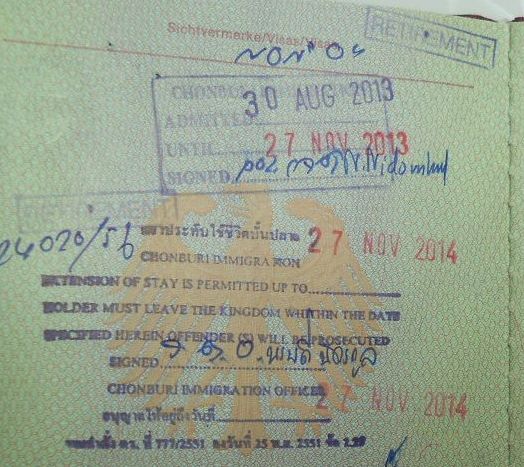 Sichtvermerke/Visas/Visas
RETIREMENT
NON "O"
CHONBURI
30 AUG 2013
ADMITTED
UNTIL 27 NOV 2013
SIGNED
RETIREMENT
24020/56 ตราประทับใช้ชีวิตบั้นปลาย 27 NOV 2014
CHONBURI IMMIGRATION
EXTENSION OF STAY IS PERMITTED UP TO
HOLDER MUST LEAVE THE KINGDOM WHITHIN THE DATE
SPECIFIED HEREIN OFFENDER (S) WILL BE PROSECUTED
SIGNED
CHONBURI IMMIGRATION OFFICER
อนุญาตให้อยู่ถึงวันที่ 27 NOV 2014
ที่ 777/2551 ลงวันที่ 25 พ.ย. 2551